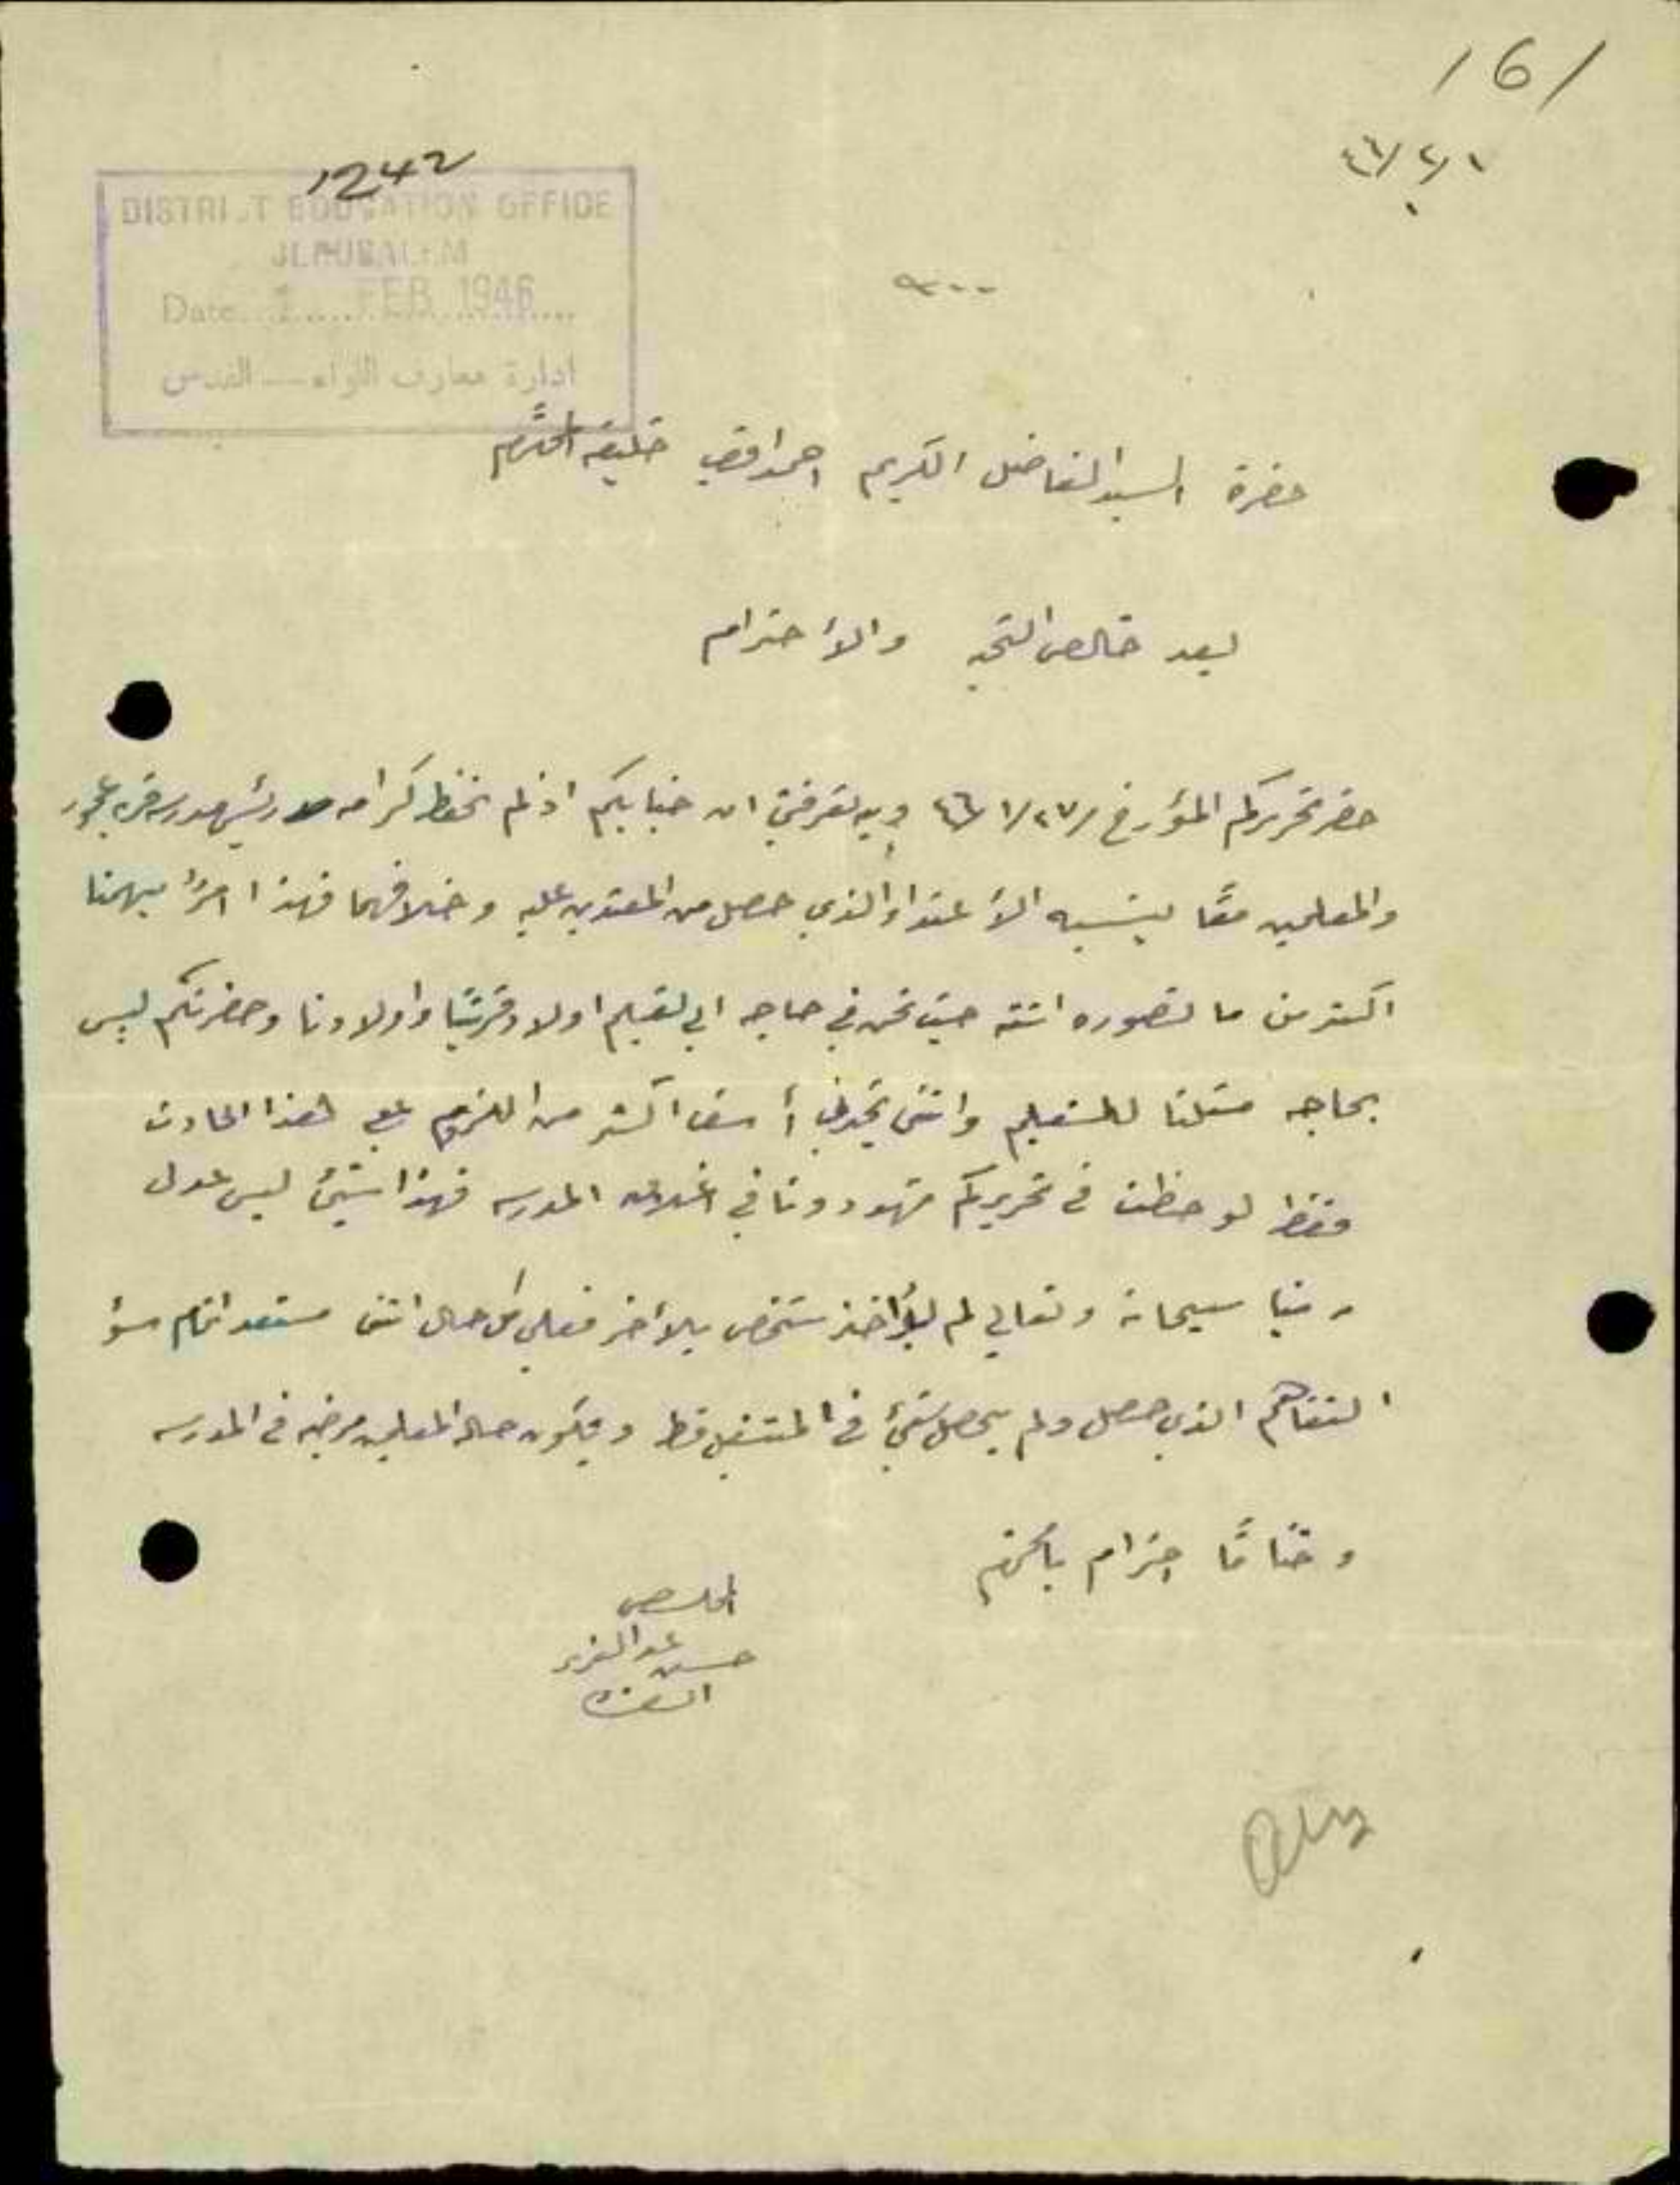 161
٤٦/٢/١
1242
DISTRICT EDUCATION OFFICE
JERUSALEM
Date 1 FEB 1946
ادارة معارف اللواء — القدس
حضرة السيد الفاضل الكريم احمد افندي خليفه المحترم
بعد خالص التحيه والأحترام
حضر تحريركم المؤرخ ٤٦/١/٢٧ وبه تعرفني ان جنابكم اذ لم تحفظ كرامه رئيس مدرسة عجور
والمعلمين معًا بنسبه الأعتداء الذي حصل من المعتدين عليه وخلافهما فهذا امرًا يهمنا
اكثر من ما تصوره انته حيث نحن في حاجه الى تعليم اولاد قريتنا واولادنا وحضرتكم ليس
بحاجه مثلنا للتعليم وانني تجدني أسف اكثر من اللزوم على هذا الحادث
فقط لوحظت في تحريركم تهددونا في اغلاق المدرسه فهذا شيئ ليس عدل
ربنا سبحانه وتعالى لم يؤاخذ شخص بالأخر فعلى كل حال انني مستعد اتمام سوء
التفاهم الذي حصل ولم يحصل شيئ في المستقبل قط وتكون حالة المعلمين مرضيه في المدرسه
وختامًا احترام
المخلص
حسين عبد العزيز